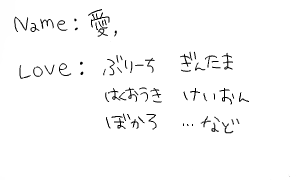 Name: 愛,
Love: ぶりーち ぎんたま
はくおうき けいおん
ぼかろ …など